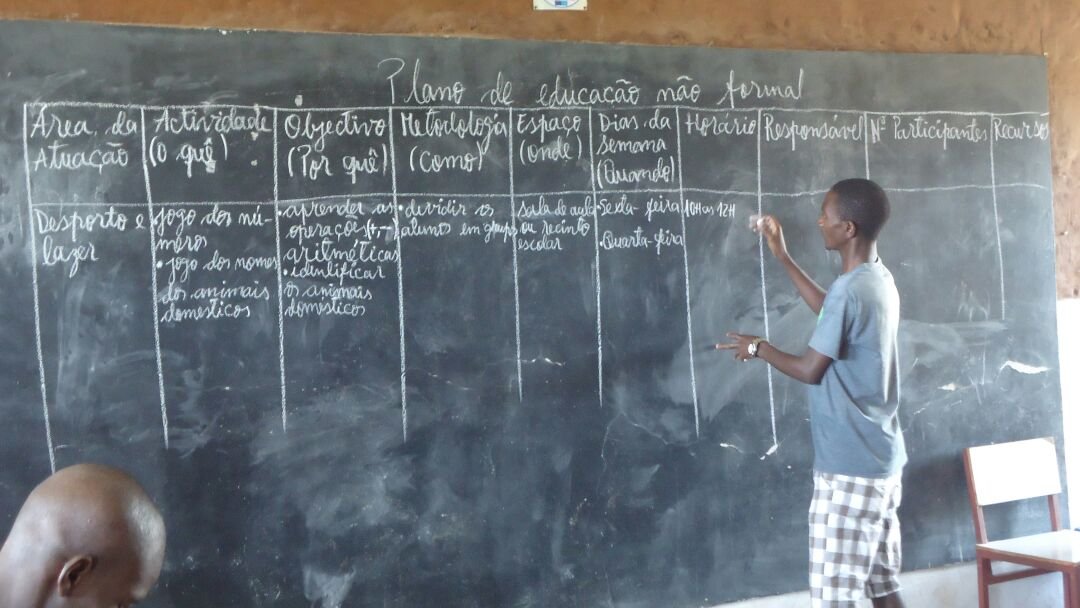 Plano de educação não formal
Área da
Atuação
Actividade
(O quê)
Objectivo
(Por quê)
Metodologia
(Como)
Espaço
(Onde)
Dias da
semana
(Quando)
Horário
Responsável
Nº Participantes
Recursos
Desporto e
lazer
• jogo dos nú-
meros
• jogo dos nomes
dos animais
domesticos
• aprender as
operações (+,-)
aritméticas
• identificar
os animais
domesticos
• dividir os
alunos em grupos
sala de aula
ou recinto
escolar
• Sexta-feira
• Quarta-feira
10H as 12H